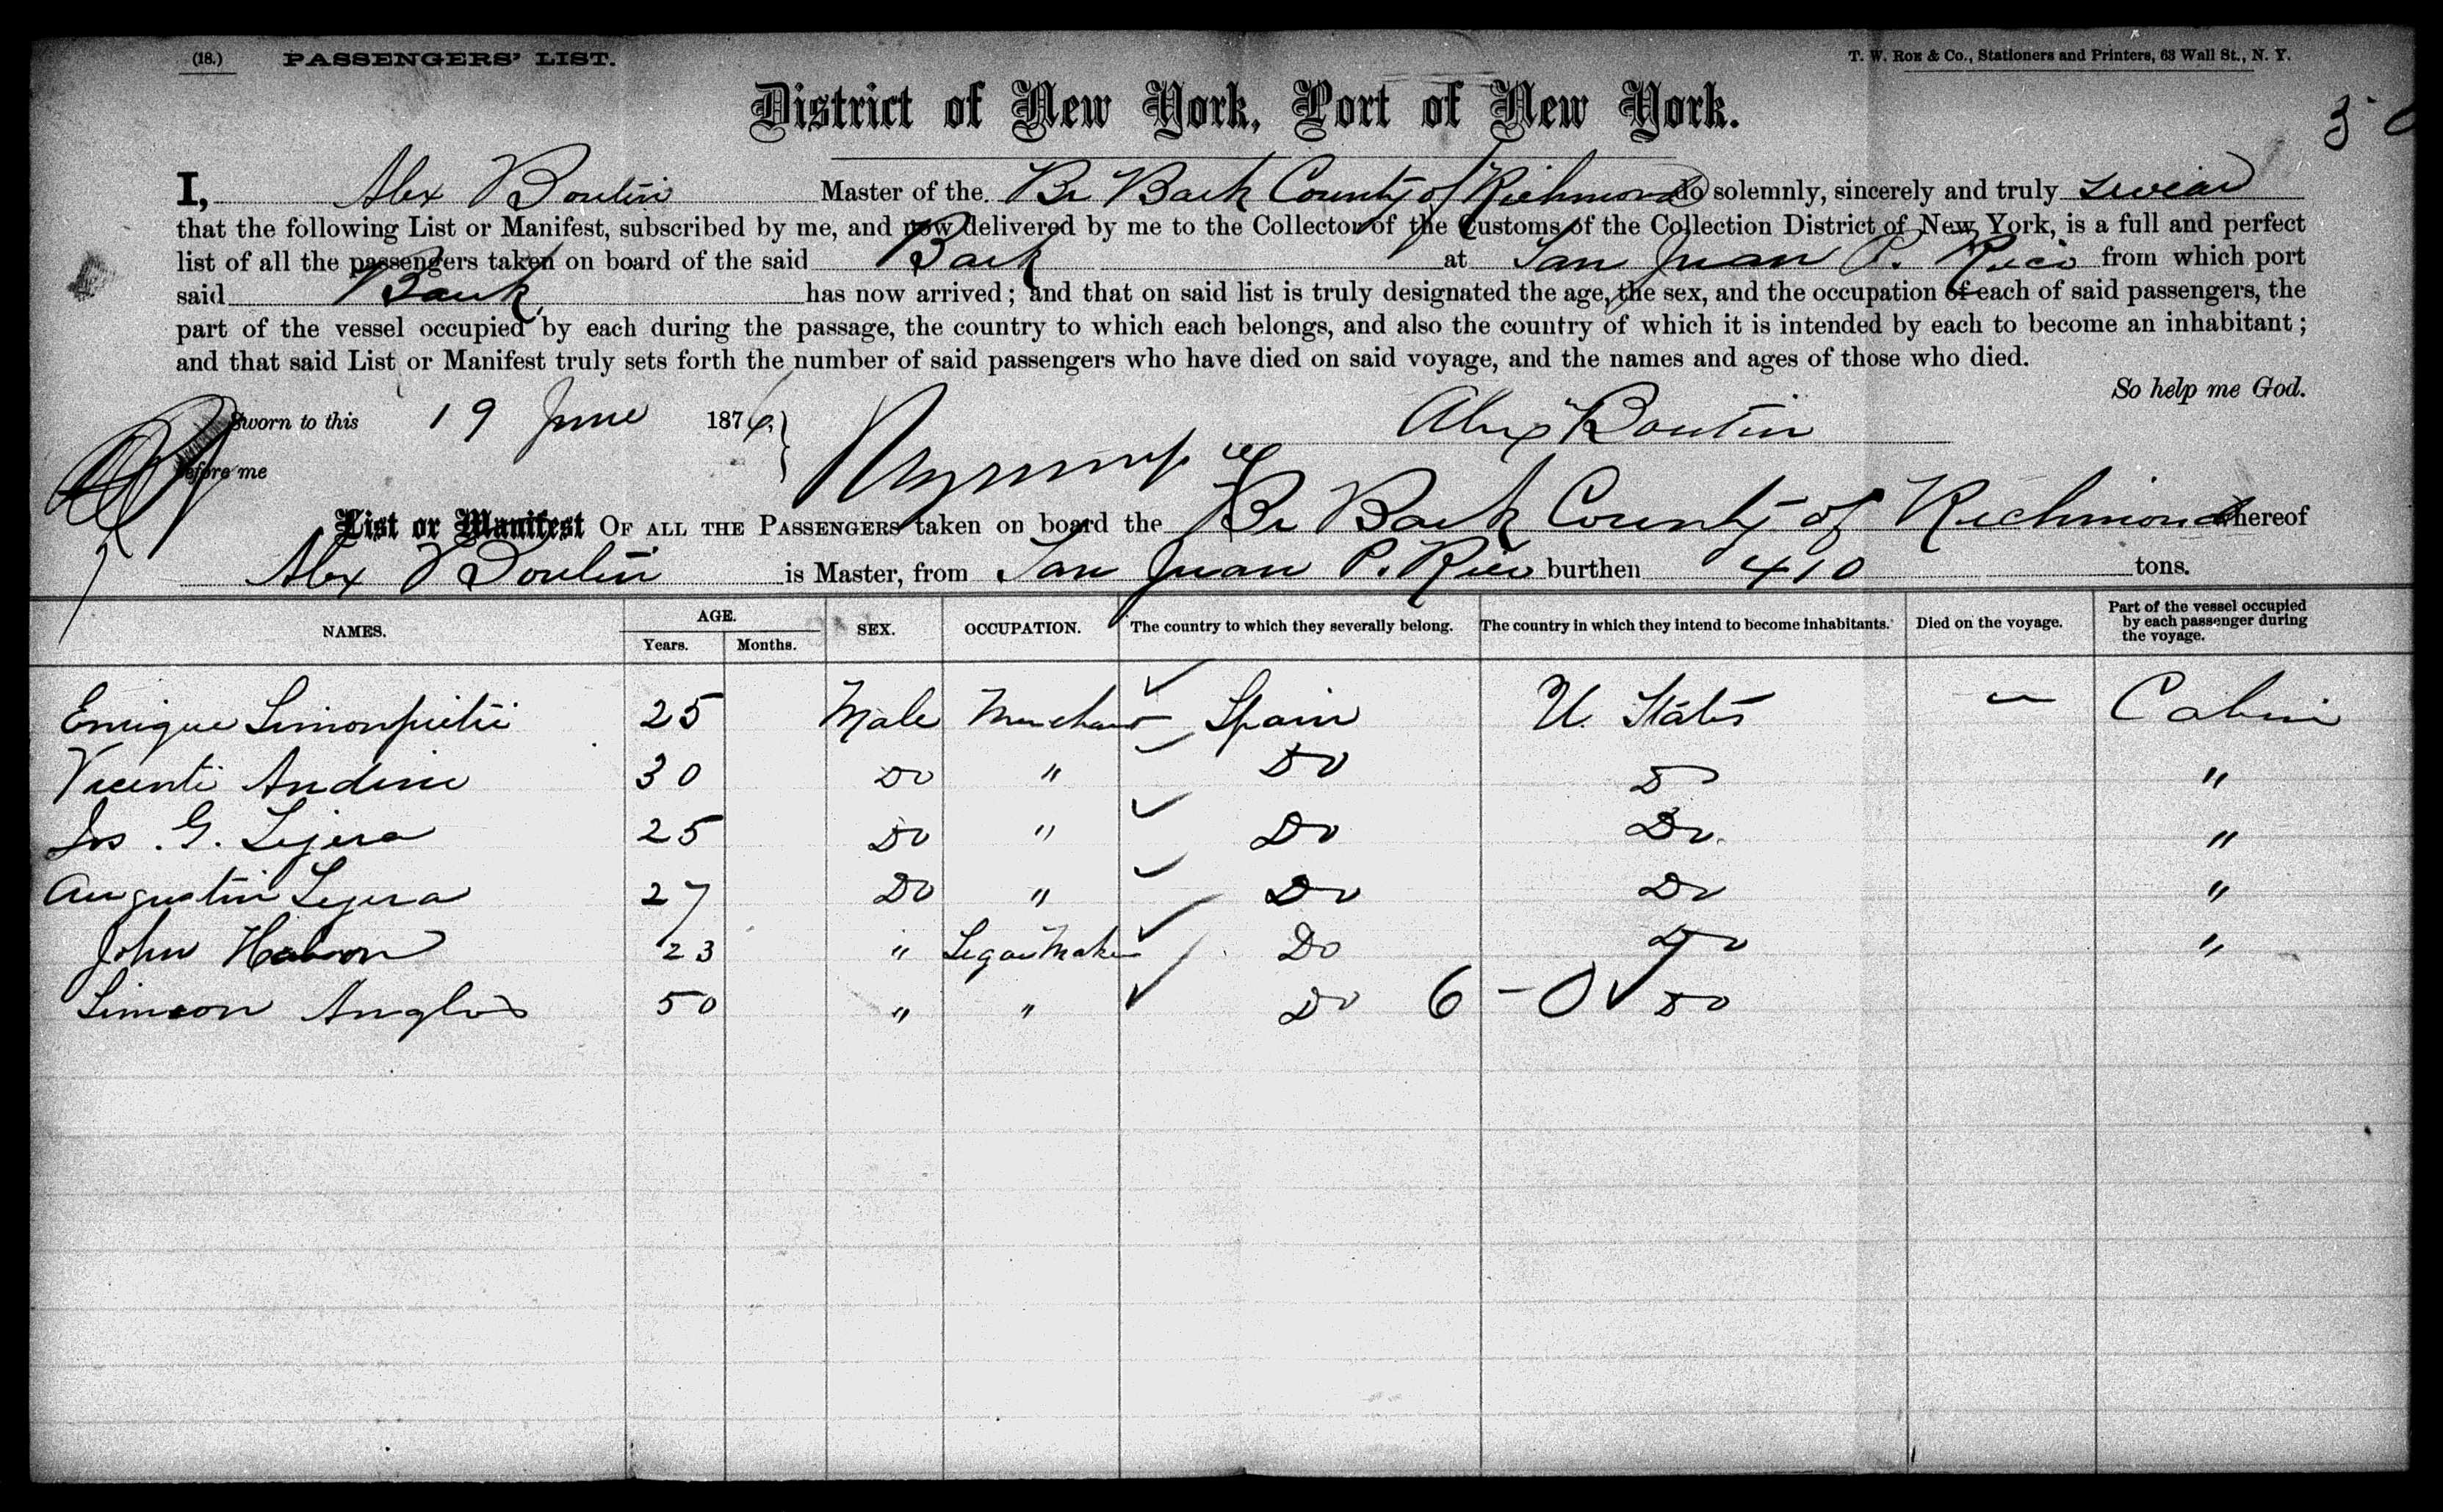 (18.) PASSENGERS' LIST. T. W. Roe & Co., Stationers and Printers, 63 Wall St., N. Y.
District of New York, Port of New York.
I, Alex Boutin Master of the Br Bark County of Richmond do solemnly, sincerely and truly swear
that the following List or Manifest, subscribed by me, and now delivered by me to the Collector of the Customs of the Collection District of New York, is a full and perfect
list of all the passengers taken on board of the said Bark at San Juan P. Rico from which port
said Bark has now arrived; and that on said list is truly designated the age, the sex, and the occupation of each of said passengers, the
part of the vessel occupied by each during the passage, the country to which each belongs, and also the country of which it is intended by each to become an inhabitant;
and that said List or Manifest truly sets forth the number of said passengers who have died on said voyage, and the names and ages of those who died.
So help me God.
Sworn to this 19 June 1876, Alex Boutin
before me
List or Manifest OF ALL THE PASSENGERS taken on board the Br Bark County of Richmond whereof
Alex Boutin is Master, from San Juan P. Rico burthen 410 tons.
NAMES. AGE. Years. Months. SEX. OCCUPATION. The country to which they severally belong. The country in which they intend to become inhabitants. Died on the voyage. Part of the vessel occupied by each passenger during the voyage.
Enrique Simonpietri 25 Male Merchant Spain U. States — Cabin
Vicenti Andine 30 Do " Do Do "
Jos. G. Lejera 25 Do " Do Do. "
Augustin Lejera 27 Do " Do Do "
John 23 " Segar Maker Do Do "
Simeon Anglos 50 " " Do 6 - 0 Do